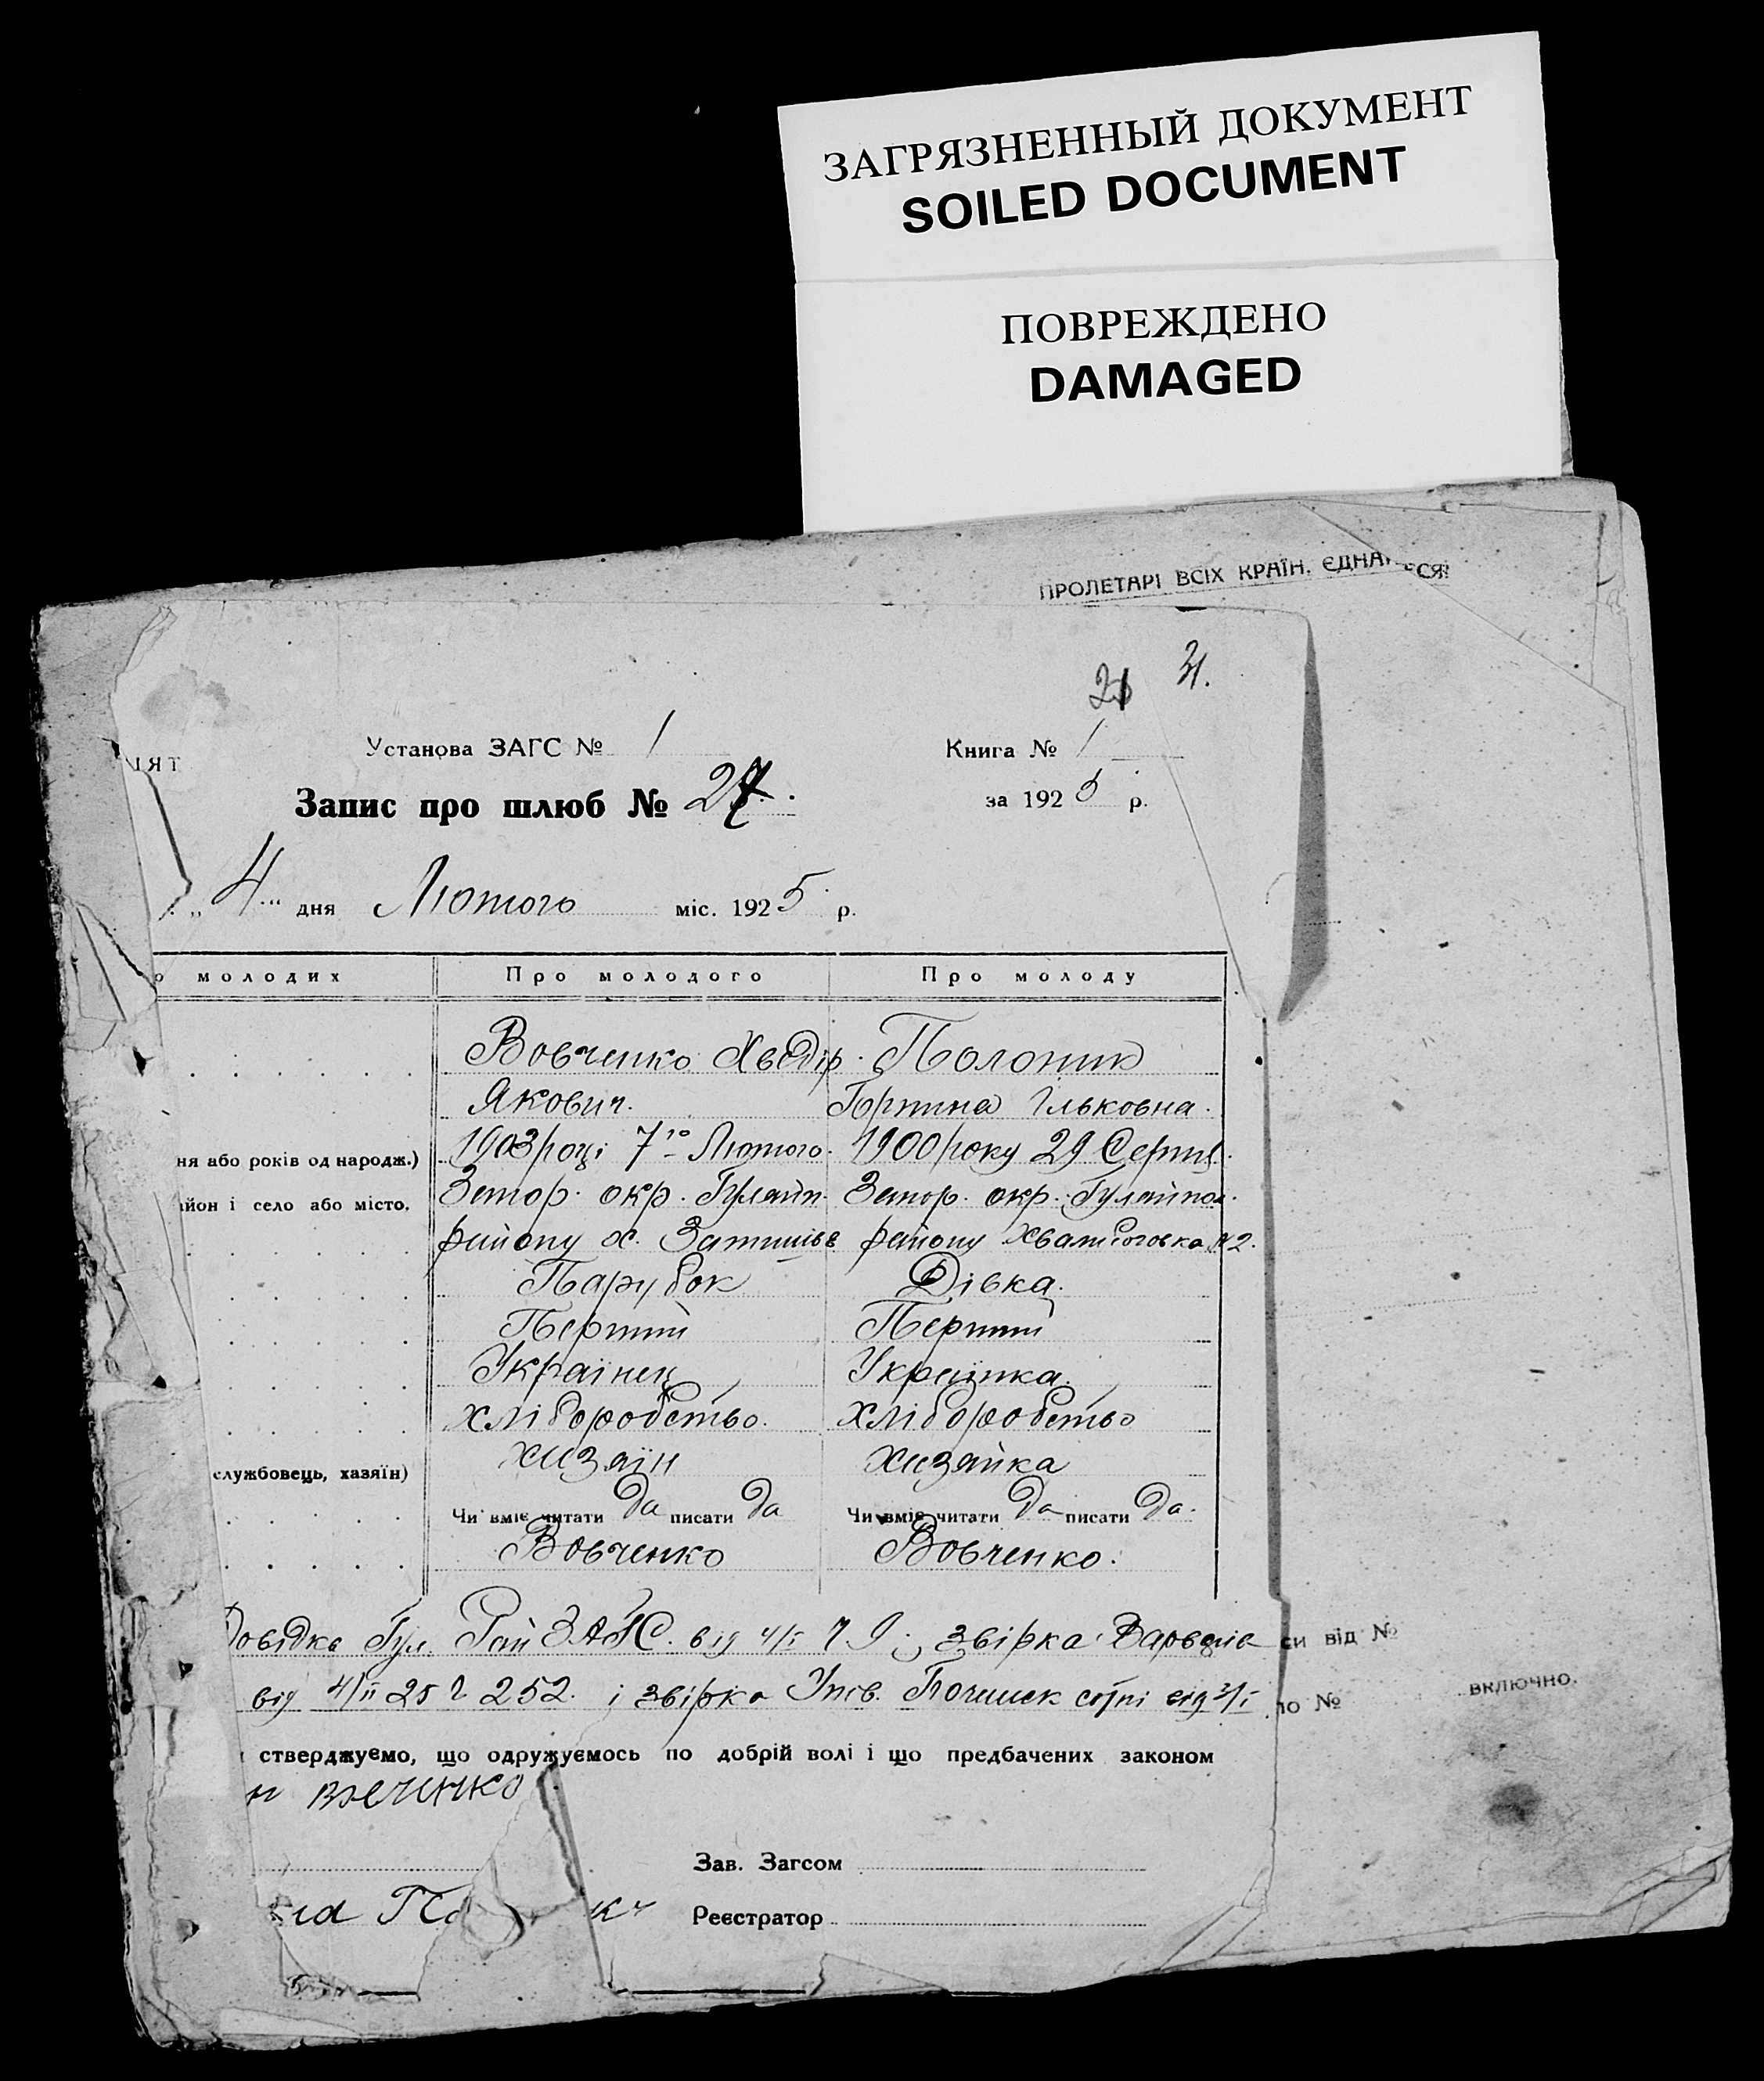 ЗАГРЯЗНЕННЫЙ ДОКУМЕНТ
SOILED DOCUMENT
ПОВРЕЖДЕНО
DAMAGED
ПРОЛЕТАРІ ВСІХ КРАЇН, ЄДНАЙ ЕСЯ!
21 21.
Установа ЗАГС № 1 Книга № 1
ЛЯТ
Запис про шлюб № 27. за 1925 р.
„4" дня Лютого міс. 1925 р.
о молодих Про молодого Про молоду
Вовченко Хведір Полоник
Якович. Ільковна.
ня або років од народж.) 1903 році 7го Лютого. 1900 року 29 Серпня.
йон і село або місто. Запор. окр. Гуляйп. Запор. окр. Гуляйпол.
району х. Затишье району №2.
Парубок Дівка.
Перший Перший
Українец Українка.
хліборобство. хліборобство
службовець, хазяїн) хазяїн хазяйка
Чи вміє читати да писати да Чи вміє читати да писати да.
Вовченко Вовченко.
Довідка Гул. Рай ЗАГС. від 4/I Ч 9 звірка си від №
від 4/II 25 Ч 252. і звірка сотні від по № включно.
стверджуємо, що одружуємось по добрій волі і що предбачених законом
Зав. Загсом
Реєстратор